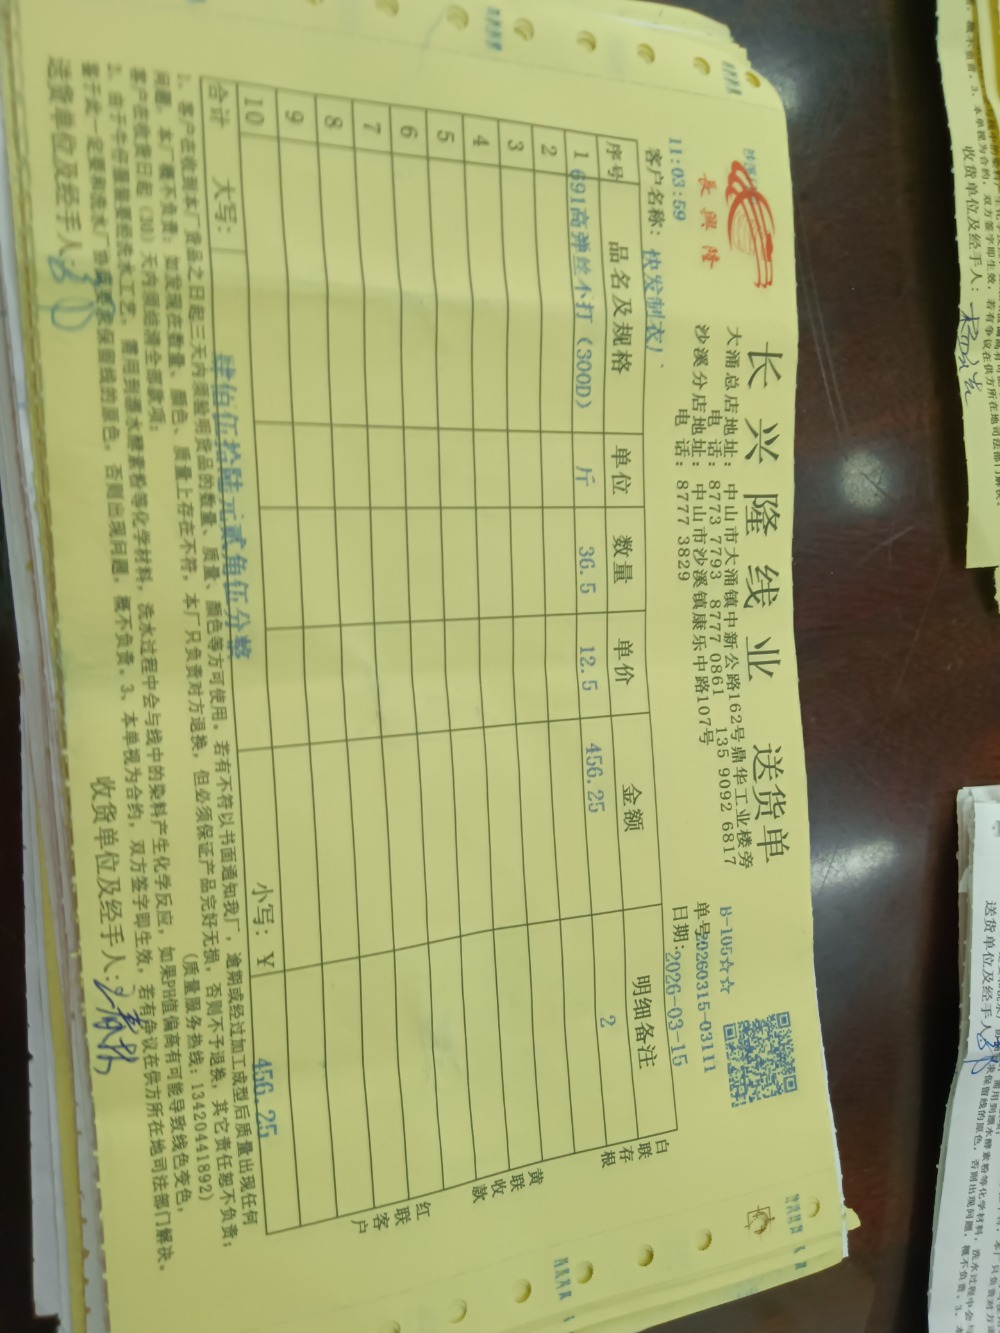 长兴隆线业 送货单
長興隆
大涌总店地址：中山市大涌镇中新公路162号鼎华工业楼旁
电话：8773 7793 8777 0861 135 9092 6817
沙溪分店地址：中山市沙溪镇康乐中路107号
电话：8777 3829
B-105☆☆
单号20260315-03111
日期:2026-03-15
11:03:59
客户名称：快发制衣厂
序号 品名及规格 单位 数量 单价 金额 明细备注
1 691高弹丝不打（300D） 斤 36.5 12.5 456.25 2
2
3
4
5
6
7
8
9
10
合计 大写：肆佰伍拾陆元贰角伍分整 小写：￥ 456.25
白联存根
黄联收款
红联客户
1、客户在收到本厂货品之日起三天内须验明货品的数量、质量、颜色等方可使用，若有不符以书面通知我厂，逾期或经过加工成型后质量出现任何
问题，本厂概不负责；如发现在数量、颜色、质量上存在不符，本厂只负责对方退换，但必须保证产品完好无损，否则不予退换，其它责任恕不负责；
客户在收货日起（30）天内须结清全部款项； （质量服务热线：13420441892）
2、由于牛仔服装要经洗水工艺，需用到漂水酵素粉等化学材料，洗水过程中会与线中的染料产生化学反应，如果PH值偏高有可能导致线色变色，
鉴于此一定要和洗水厂协商要求保留线的原色，否则出现问题，概不负责。3、本单视为合约，双方签字即生效，若有争议在供方所在地司法部门解决。
送货单位及经手人： 收货单位及经手人：
收货单位及经手人：
送货单位及经手人